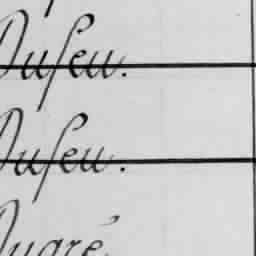 Dufeu.
Dufeu.
Dugré